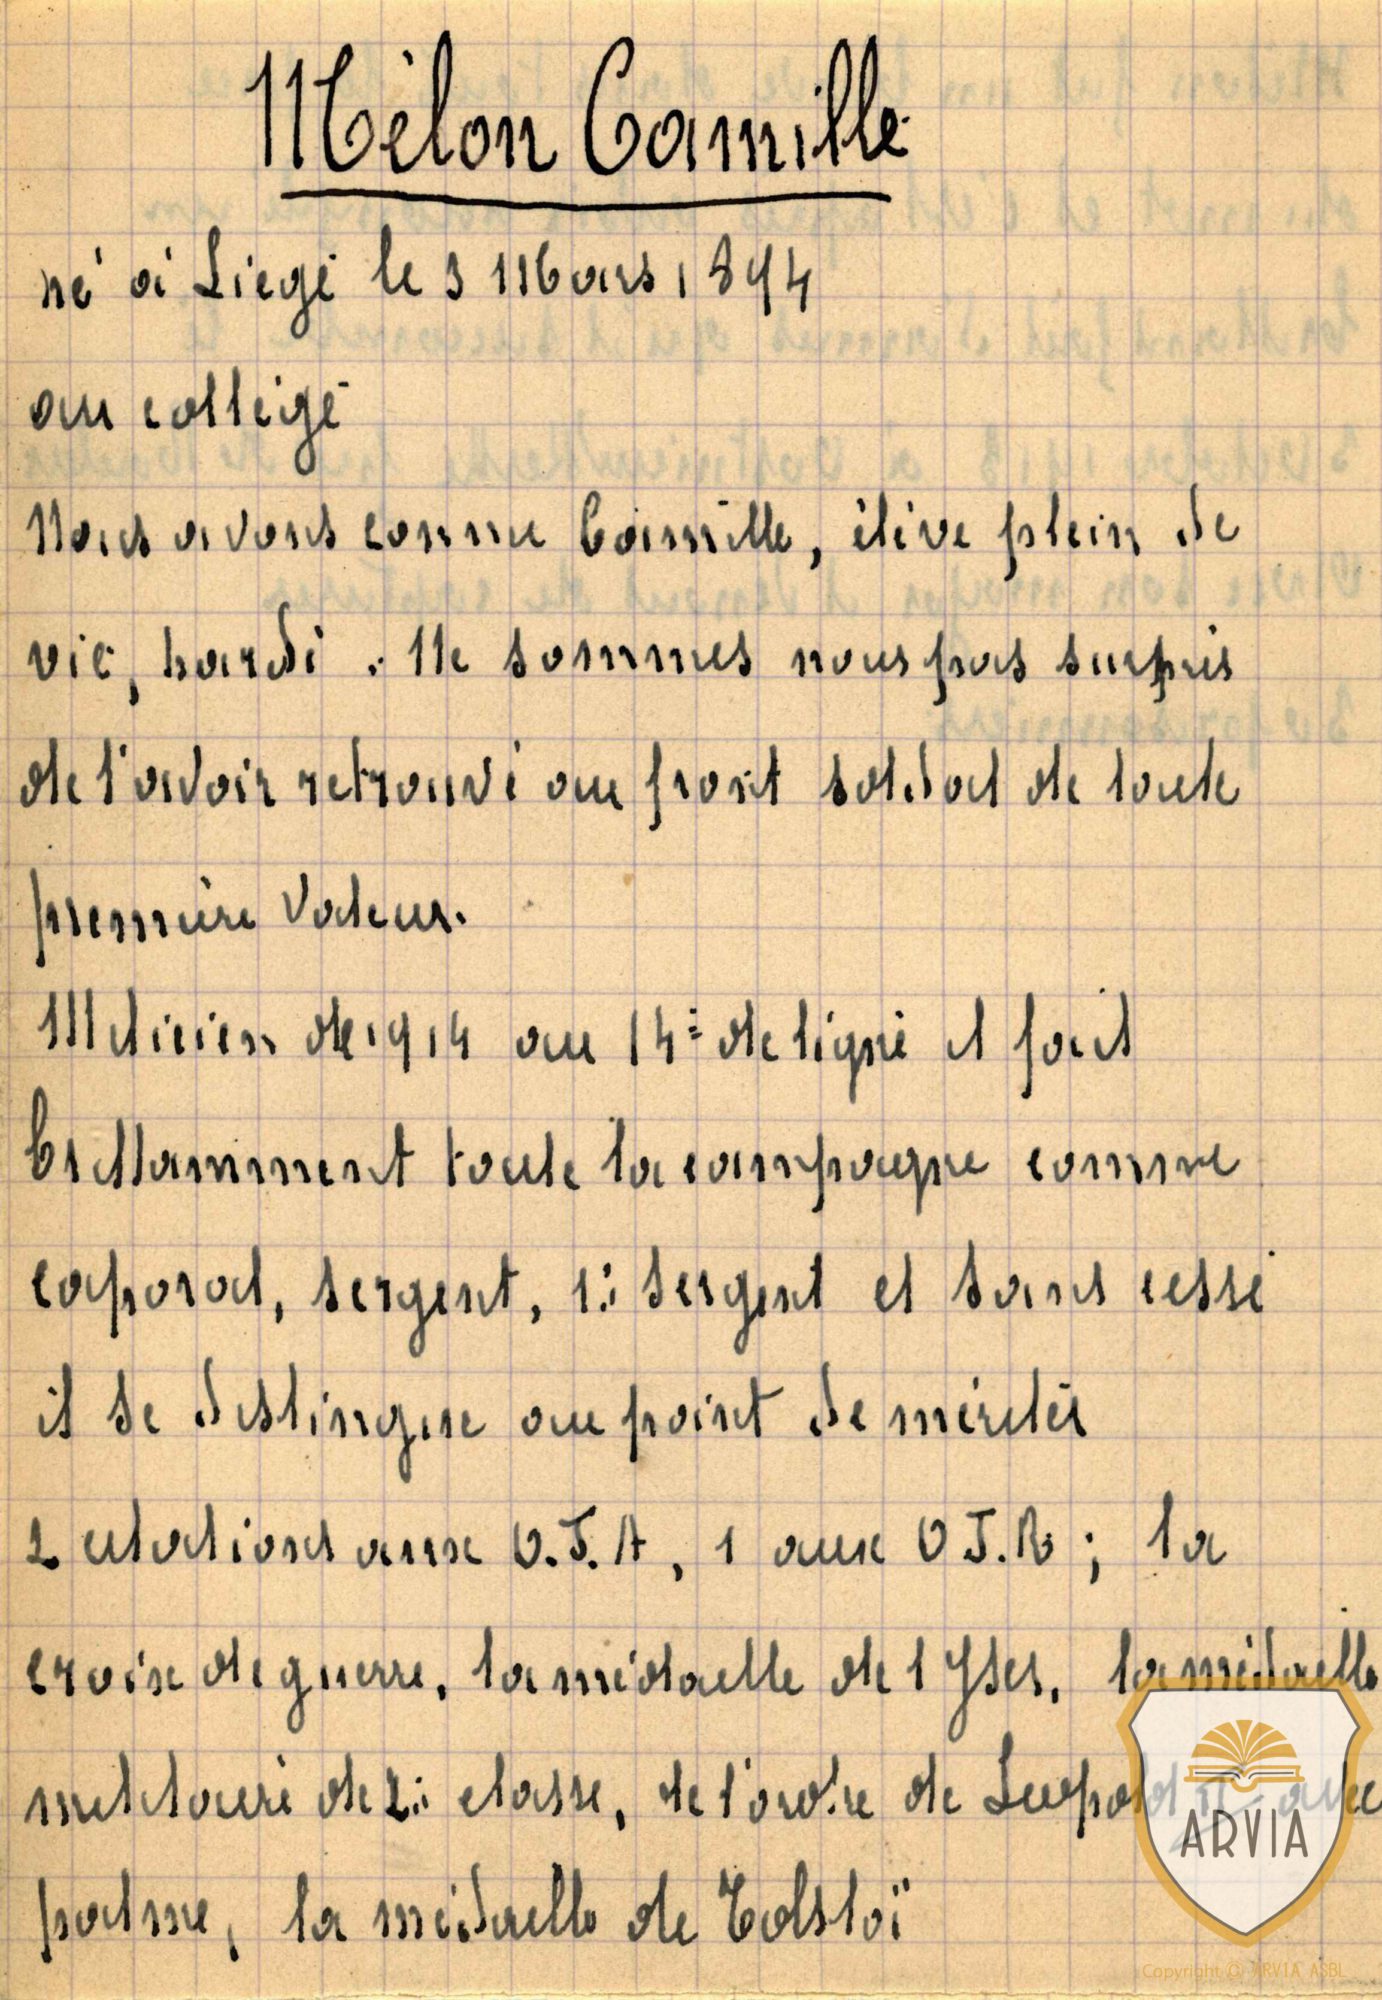 Mélon Camille
né à Liège le 3 Mars 1894
au collège
Nous avons connu Camille, élève plein de
vie, hardi. Ne sommes nous pas surpris
de l'avoir retrouvé au front soldat de toute
première valeur.
Milicien de 1914 au 14e de ligne il fait
brillamment toute la campagne comme
caporal, sergent, 1e sergent et sans cesse
il se distingue au point de mériter
2 citations aux O.J.A, 1 aux O J.R; la
croix de guerre, la médaille de l'Yser, la médaille
militaire de 2e classe, de l'ordre de Léopold II avec
palme, la médaille de Tolstoï
ARVIA
Copyright © ARVIA ASBL